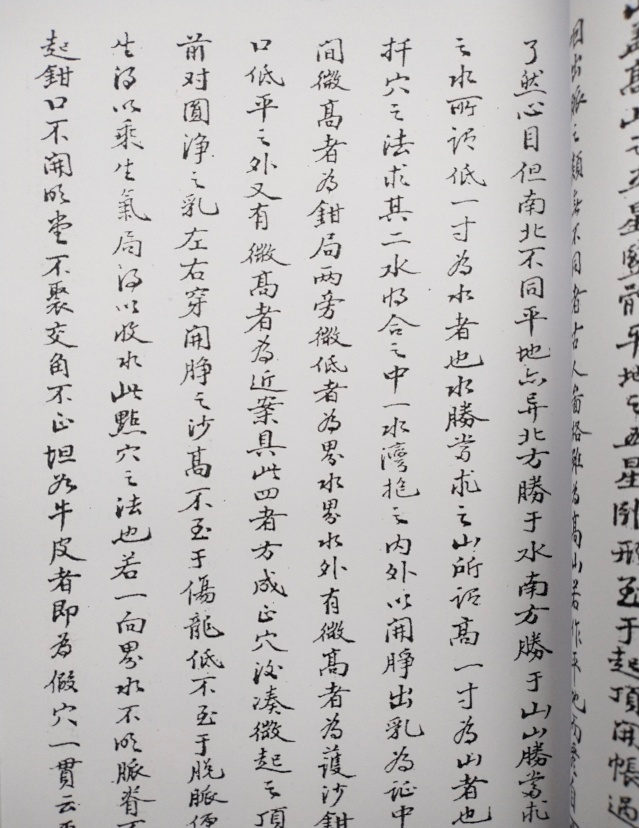 高山之五星豎龍平地之五星卧形至于起頂開帳過
出脈之類無不同者古人
了然心目但南北不同平地亦异北方勝于水南方勝于山山勝當求
之水所謂低一寸為水者也水勝當求之山所謂高一寸為山者也
扦穴之法求其二水將合之中一水灣抱之内外以開睜出乳為证中
間微高者為鉗局两旁微低者為界水界水外有微高者為護沙鉗
口低平之外又有微高者為近案具此四者方成正穴後凑微起之頂
前对圓净之乳左右穿開睜之沙高不至于傷龍低不至于脱脈便
生得以乘生氣局得以收水此點穴之法也若一向界水不明脈脊不
起鉗口不開明堂不聚交角不正坦如牛皮者即為假穴一貫云